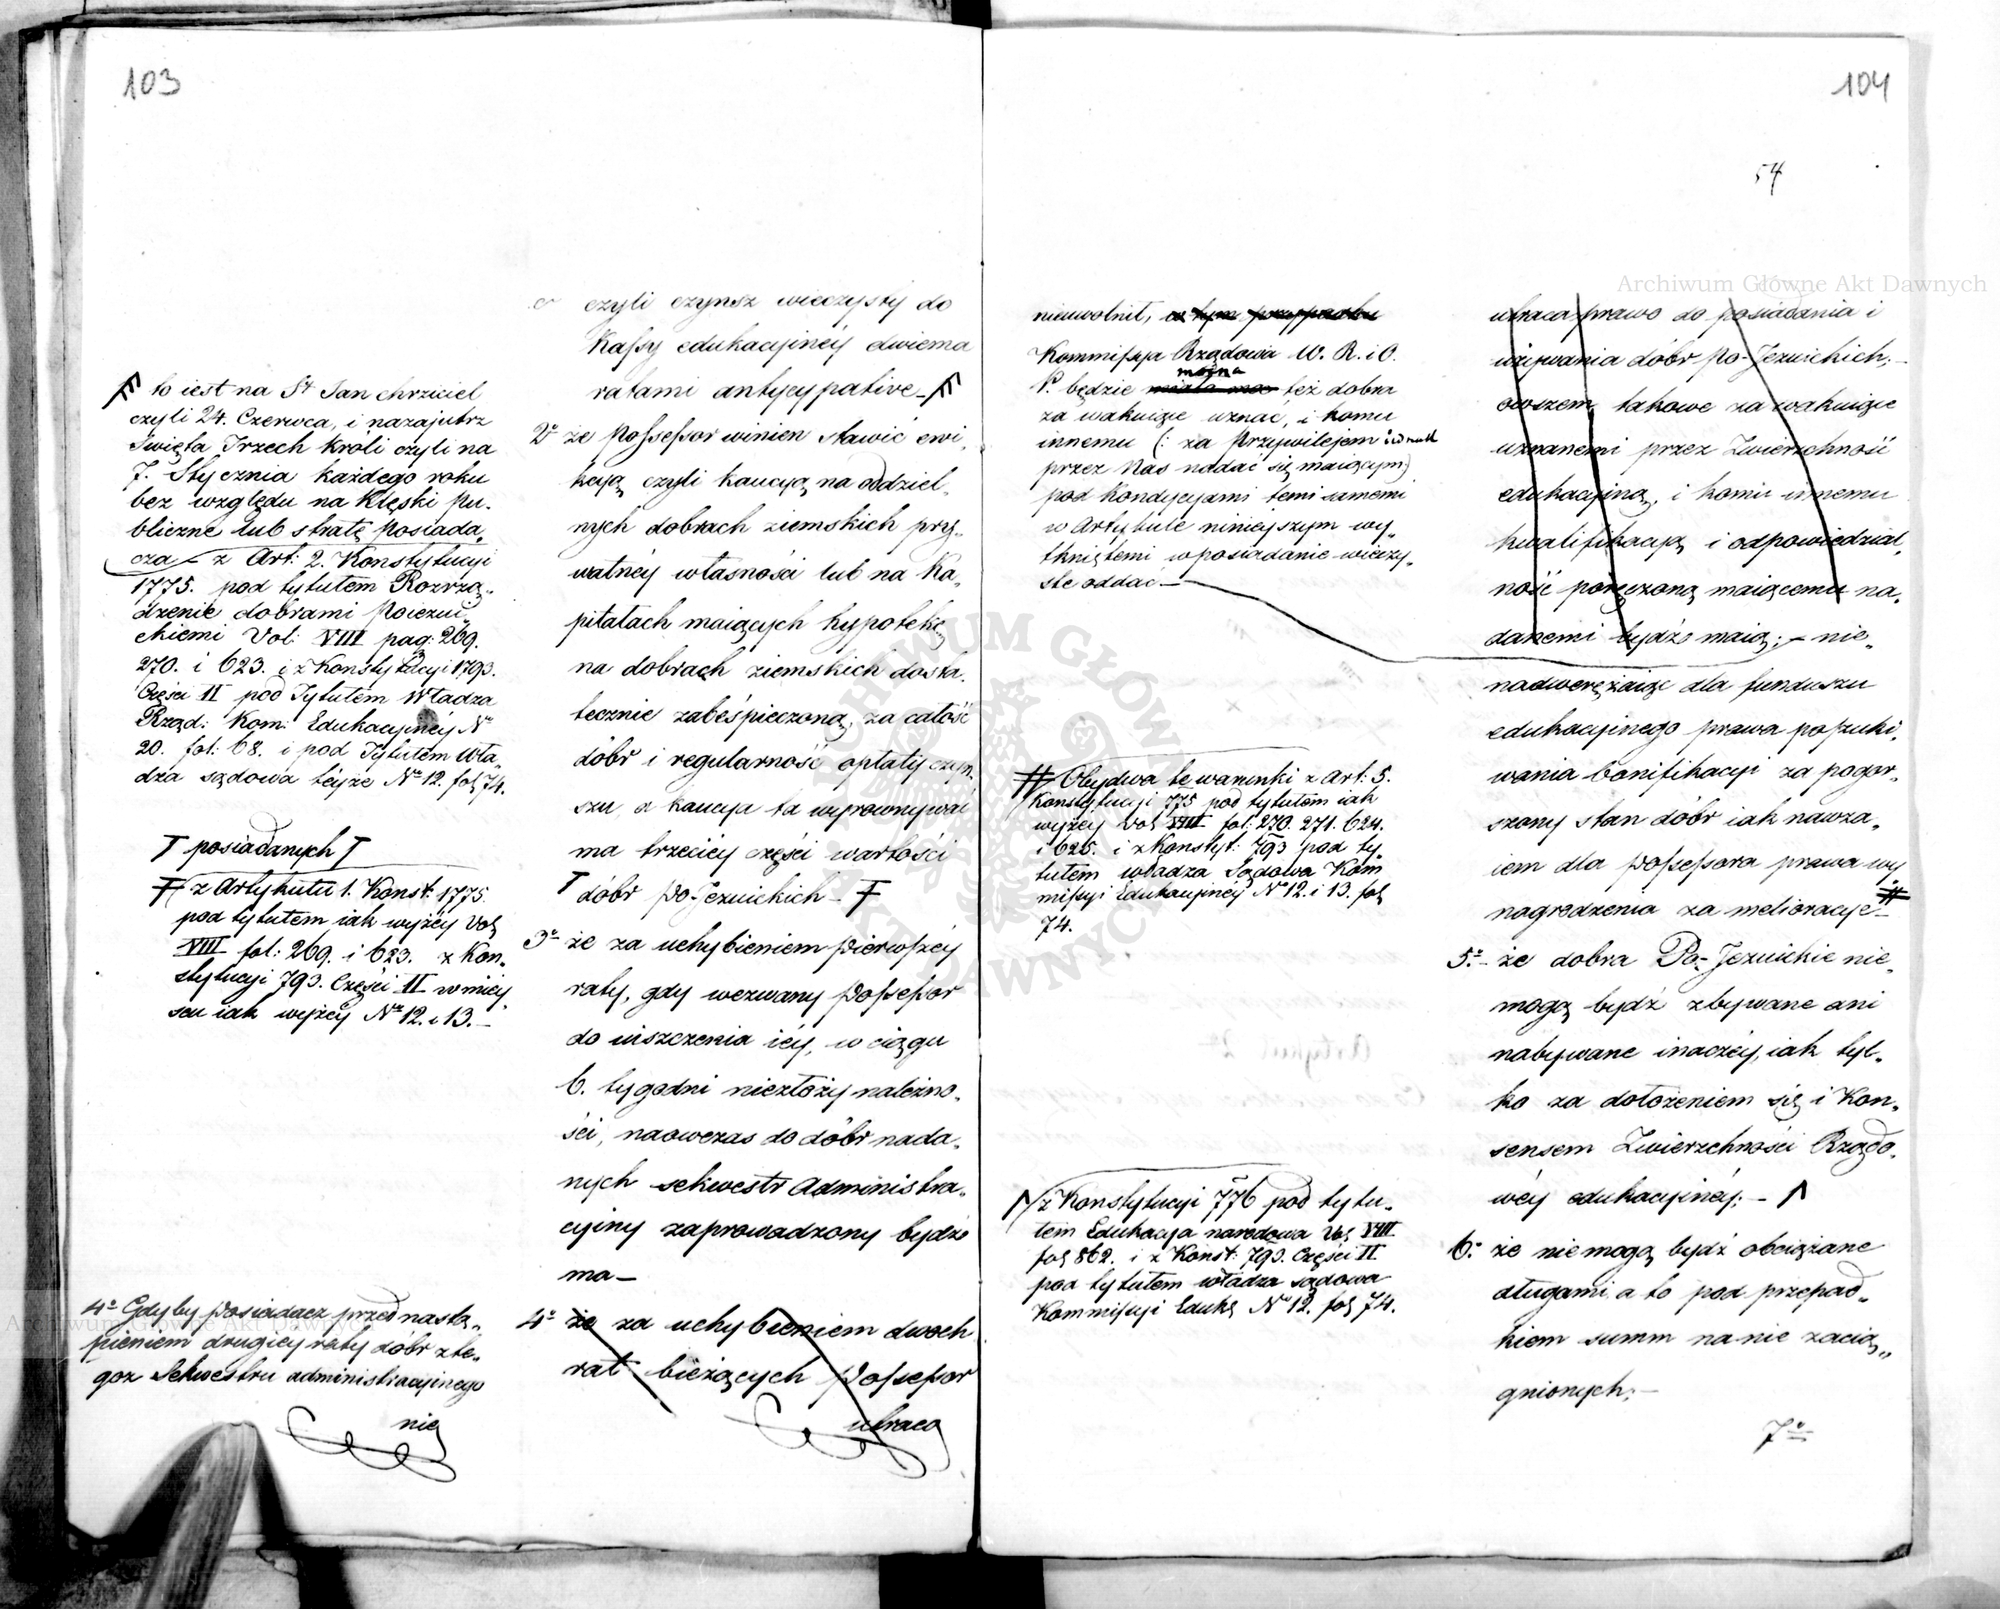 103
to iest na St Jan chrzciciel
czyli 24. Czerwca, i nazajutrz
Swięta Trzech króli czyli na
7. Stycznia każdego roku
bez względu na klęski pu-
bliczne lub stratę posiada-
cza – z Art: 2. Konstytucyi
1775. pod tytułem Rozrzą-
dzenie dobrami Poiezui-
ckiemi Vol: VIII pag: 269.
270. i 623. i z Konstytucyi 1793.
Części II pod Tytułem Władza
Rząd: Kom: Edukacyinéy No
20. fol: 68. i pod Tytułem Wła-
dza sądowa téyże No 12. fol 74.
T posiadanych T
z Artykułu 1. Konst: 1775
pod tytułem iak wyżéy Vol
VIII fol: 269. i 623. z Kon-
stytucyi 793. Części II w miey-
scu iak wyżéy No 12. i 13. –
4o Gdyby Posiadacz przed nastą-
pieniem drugiey raty dóbr z te-
goż Sekwestru administracyinego
nie
czyli czynsz wieczysty do
Kassy edukacyinéy dwiema
ratami antycypative –
2o że Possessor winien stawić ewi-
kcyą czyli kaucyą na oddziel-
nych dobrach ziemskich pry-
watnéy własności lub na Ka-
pitałach maiących hypotekę
na dobrach ziemskich dosta-
tecznie zabéspieczoną, za całość
dóbr i regularność opłaty czyn-
szu, a kaucya ta wyrownywać
ma trzeciéy części wartości
T dóbr Po-Jezuickich –
3o że za uchybieniem pierwszéy
raty, gdy wezwany Possessor
do uiszczenia iéy, w ciągu
6. tygodni niezłoży należno-
ści, naówczas do dóbr nada-
nych sekwestr administra-
cyiny zaprowadzony bydź
ma –
4o że za uchybieniem dwóch
rat bieżących Possessor
utraca
104
54
nieuwolnił, w tym przypadku
Kommissya Rządowa W. R. i O.
można
P. będzie miała moc też dobra
za wakuiące uznać, i komu
innemu (: za Przywilejem iednak
przez Nas nadać się maiącym:)
pod kondycyami temi samemi
w Artykule ninieyszym wy-
tkniętemi w posiadanie wieczy-
ste oddać –
# Obydwa te warunki z Art: 5.
Konstytucyi 775 pod tytułem iak
wyżéy Vol VIII fol: 270. 271. 624.
i 625. i z Konstyt: 793 pod ty-
tułem władza Sądowa Kom-
missyi Edukacyinéy No 12. i 13. fol
74.
z Konstytucyi 776 pod tytu-
łem Edukacya narodowa Vol VIII
fol 862. i z Konst: 793. Części II
pod tytułem władza sądowa
Kommissyi Eduk No 12. fol 74.
utraca prawo do posiadania i
używania dóbr Po-Jezuickich; –
owszem takowe za wakuiące
uznanemi przez Zwierzchność
edukacyiną, i komu innemu
kwalifikacyą i odpowiedzial-
ność poręczoną maiącemu na-
danemi bydź maią; – nie-
nadweręzaiąc dla funduszu
edukacyinego prawa poszuki-
wania bonifikacyi za pogor-
szony stan dóbr iak nawza-
iem dla Possessora prawa wy-
nagrodzenia za melioracye – #
5o – że dobra Po-Jezuickie nie-
mogą bydź zbywane ani
nabywane inaczéy, iak tyl-
ko za dołożeniem się i Kon-
sensem Zwierzchności Rządo-
wéy edukacyinéy; –
6o że niemogą bydź obciążane
długami, a to pod przepad-
kiem summ na nie zacią-
gnionych; –
7o
Archiwum Główne Akt Dawnych
Archiwum Główne Akt Dawnych
ARCHIWUM GŁÓWNE AKT DAWNYCH